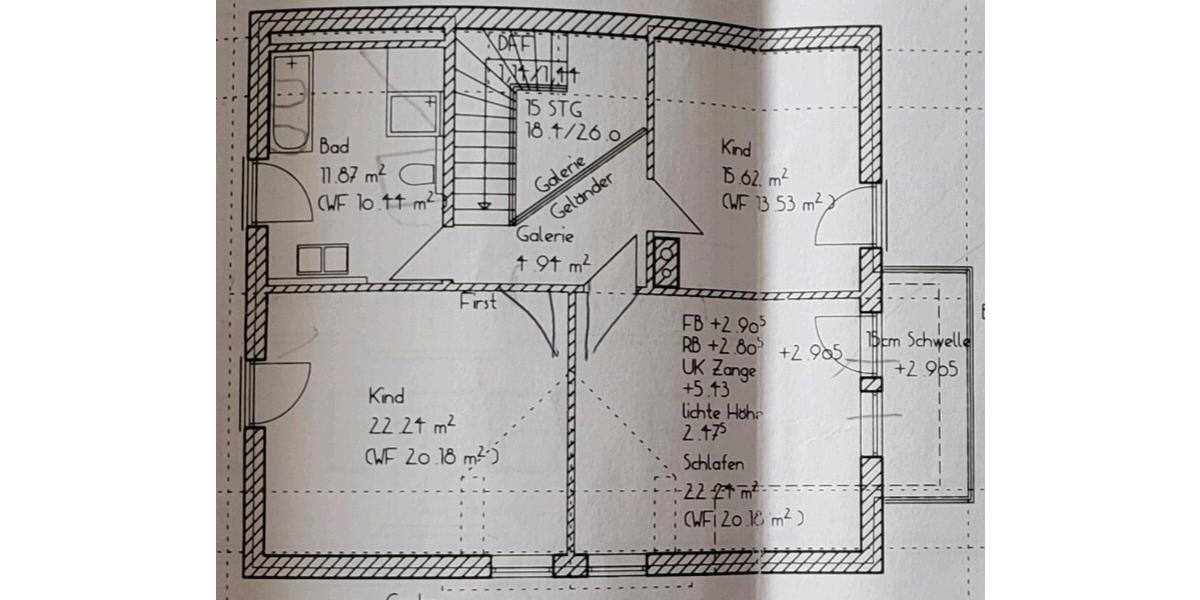 DAF
1.14/1.44
15 STG
18.4/26.0
Bad
11.87 m²
(WF 10.44 m²)
Galerie
Geländer
Galerie
4.94 m²
Kind
15.62 m²
(WF 13.53 m²)
First
Kind
22.24 m²
(WF 20.18 m²)
FB +2.90⁵
RB +2.80⁵
UK Zange
+5.43
lichte Höhe
2.47⁵
+2.905
15cm Schwelle
+2.905
Schlafen
22.24 m²
(WF 20.18 m²)